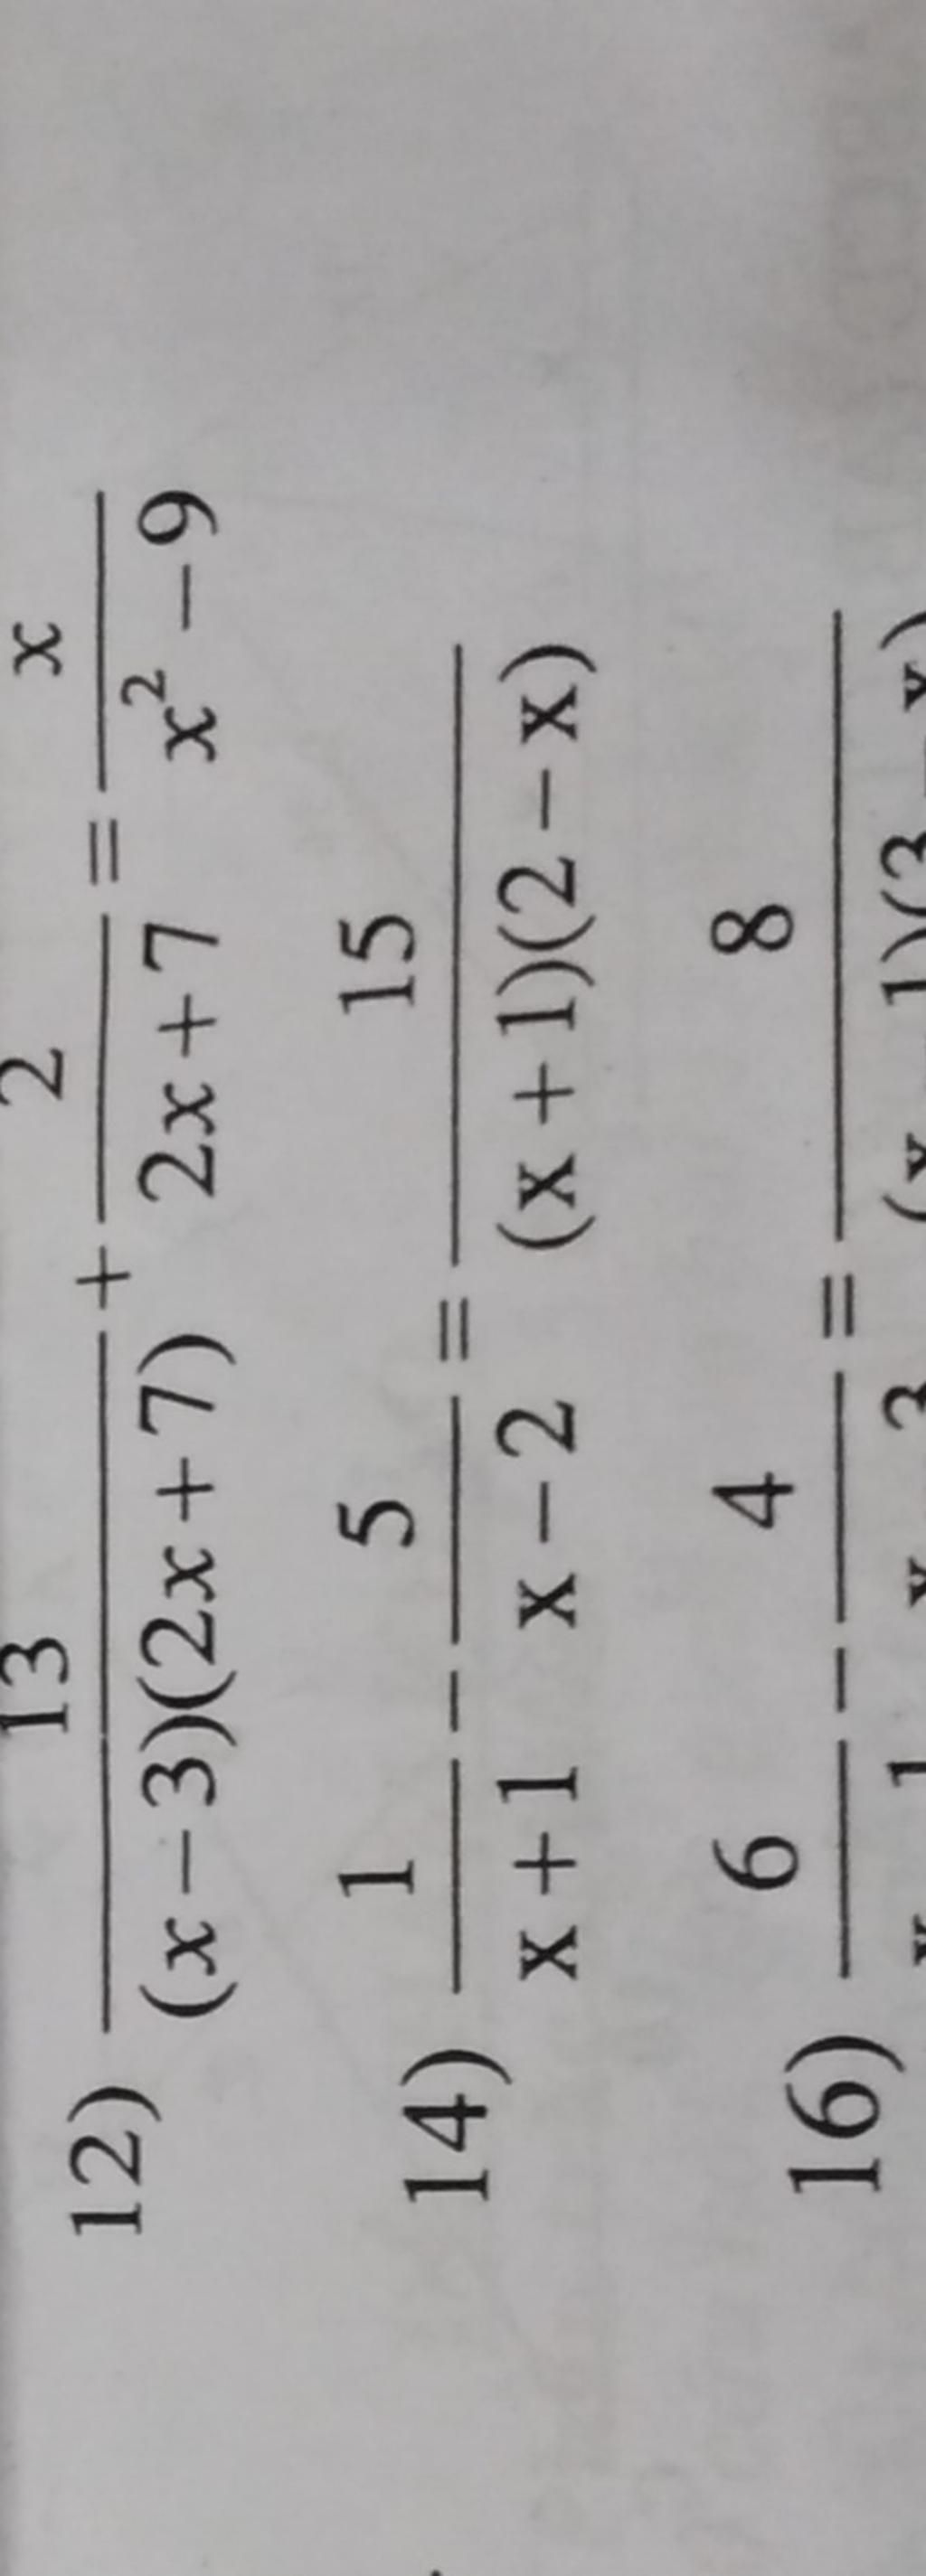 12) 13/((x − 3)(2x + 7)) + 2/(2x + 7) = x/(x² − 9)
14) 1/(x + 1) − 5/(x − 2) = 15/((x + 1)(2 − x))
16) 6/(x 1) − 4/(x 3) = 8/((x 1)(3 x))